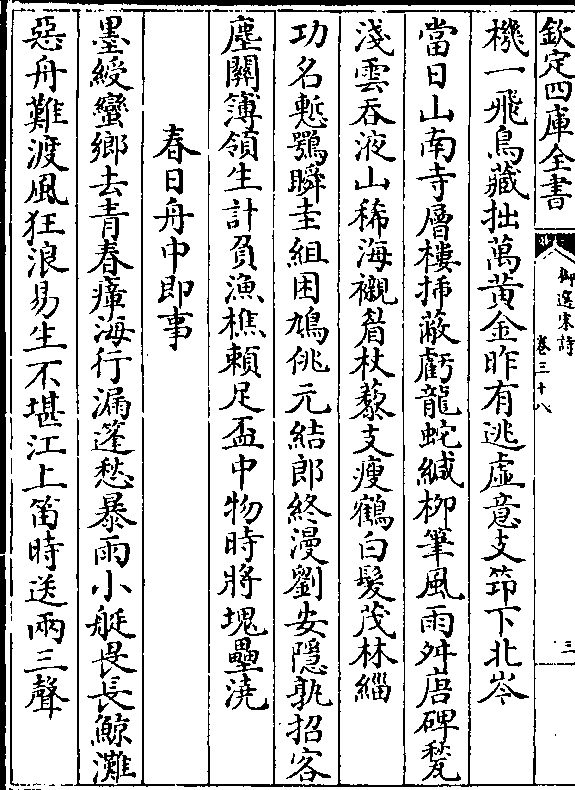 欽定四庫全書
御選宋詩
卷三十八
三
機一飛鳥藏拙萬黃金昨有逃虛意支筇下北岑
當日山南寺層樓插蔽虧龍蛇緘柳筆風雨舛唐碑甃
淺雲吞液山稀海襯眉杖藜支瘦鶴白髮茂林緇
功名慙鶚瞬圭組困鳩佻元結郎終漫劉安隱孰招客
塵關簿領生計負漁樵賴足盃中物時將塊壘澆
春日舟中即事
墨綬蠻鄉去青春瘴海行漏篷愁暴雨小艇畏長鯨灘
惡舟難渡風狂浪易生不堪江上笛時送兩三聲